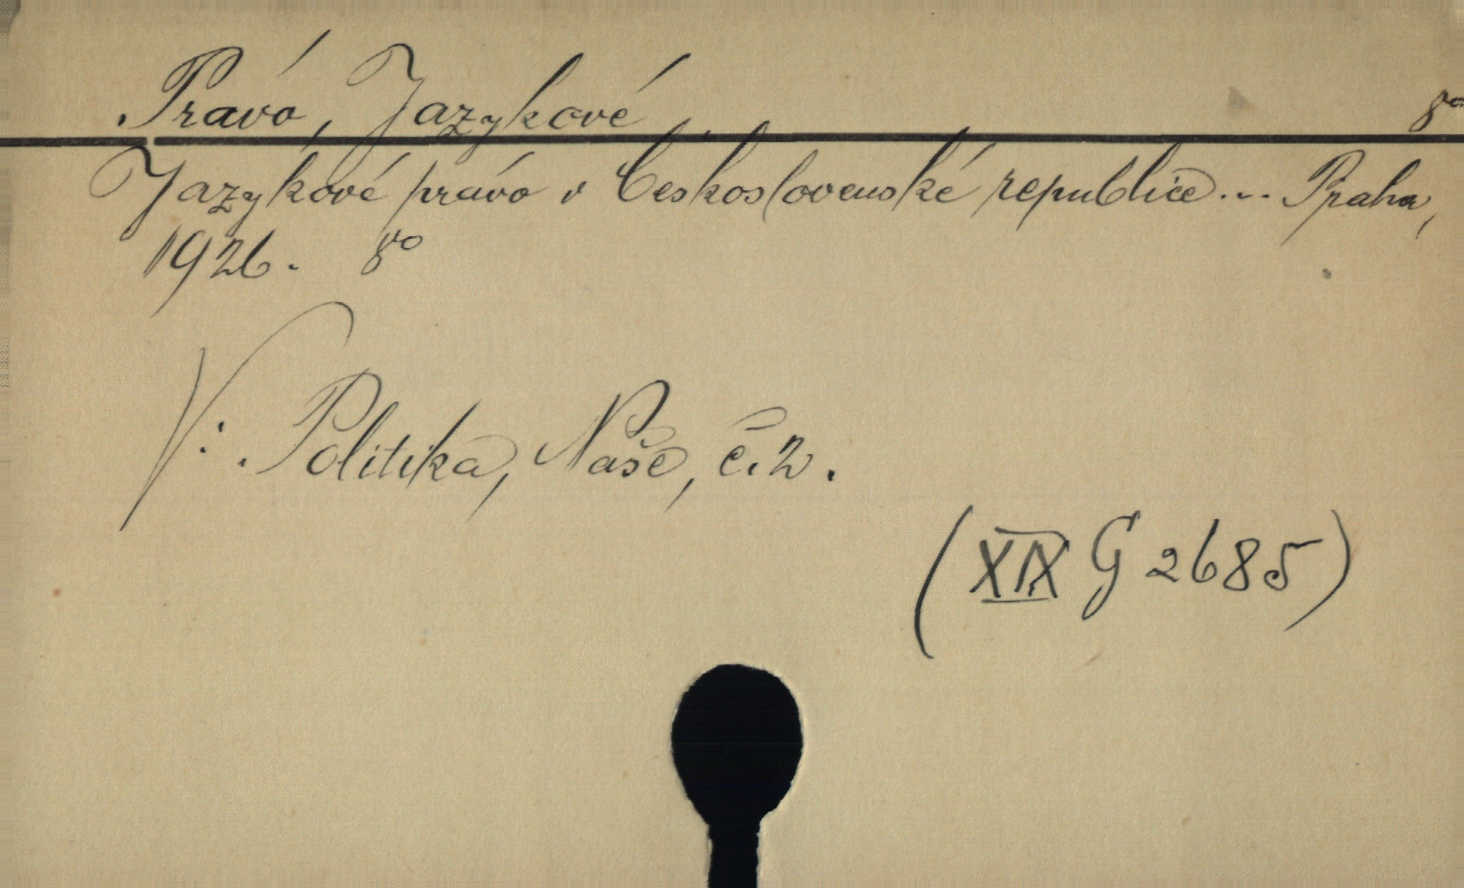 Právo, Jazykové 8°
Jazykové právo v Československé republice... Praha,
1926. 8°
V: Politika, Naše, č. 2.
(XIX G 2685)